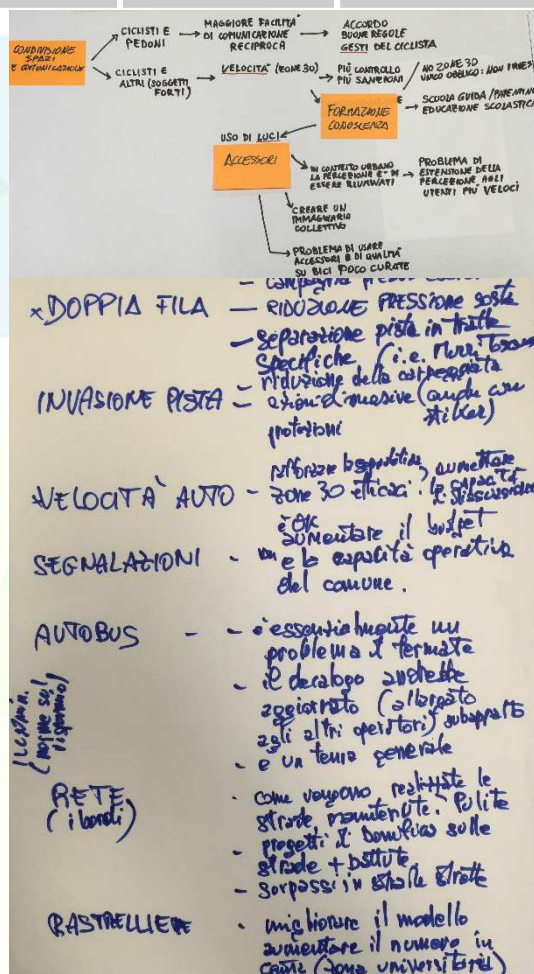 CONDIVISIONE
SPAZI
E COMUNICAZIONE
CICLISTI E
PEDONI
MAGGIORE FACILITÀ
DI COMUNICAZIONE
RECIPROCA
ACCORDO
BUONE REGOLE
GESTI DEL CICLISTA
CICLISTI E
ALTRI (SOGGETTI
FORTI)
VELOCITÀ (ZONE 30)
PIÙ CONTROLLO
PIÙ SANZIONI
NO ZONE 30
FORMAZIONE E
CONOSCENZA
SCUOLA GUIDA / PATENTINO
EDUCAZIONE SCOLASTICA
USO DI LUCI
ACCESSORI
IN CONTESTO URBANO
LA PERCEZIONE E' DI
ESSERE ILLUMINATI
PROBLEMA DI
ESTENSIONE DELLA
PERCEZIONE AGLI
UTENTI PIÙ VELOCI
CREARE UN
IMMAGINARIO
COLLETTIVO
PROBLEMA DI USARE
ACCESSORI E DI QUALITÀ
SU BICI POCO CURATE
- campagna
x DOPPIA FILA — RIDUZIONE PRESSIONE sosta
- separazione pista in tratte
specifiche (i.e. Murri
- riduzione della carreggiata
INVASIONE PISTA - azioni dimassive (anche con
stiker)
protezioni
VELOCITÀ AUTO - aumentare
zone 30 efficaci. la capacità
è OK
aumentare il budget
SEGNALAZIONI - e la capacità operativa
del comune.
AUTOBUS - - è essenzialmente un
problema di fermate
- il decalogo andrebbe
aggiornato (allargato
agli altri operatori) subappalto
- è un tema generale
RETE
(i bordi)
- come vengono realizzate le
strade manutenute. Pulite
- progetti di bonifica sulle
strade + battute
- sorpassi in strade strette
RASTRELLIERE - migliorare il modello
aumentare il numero in
(zona universitaria)